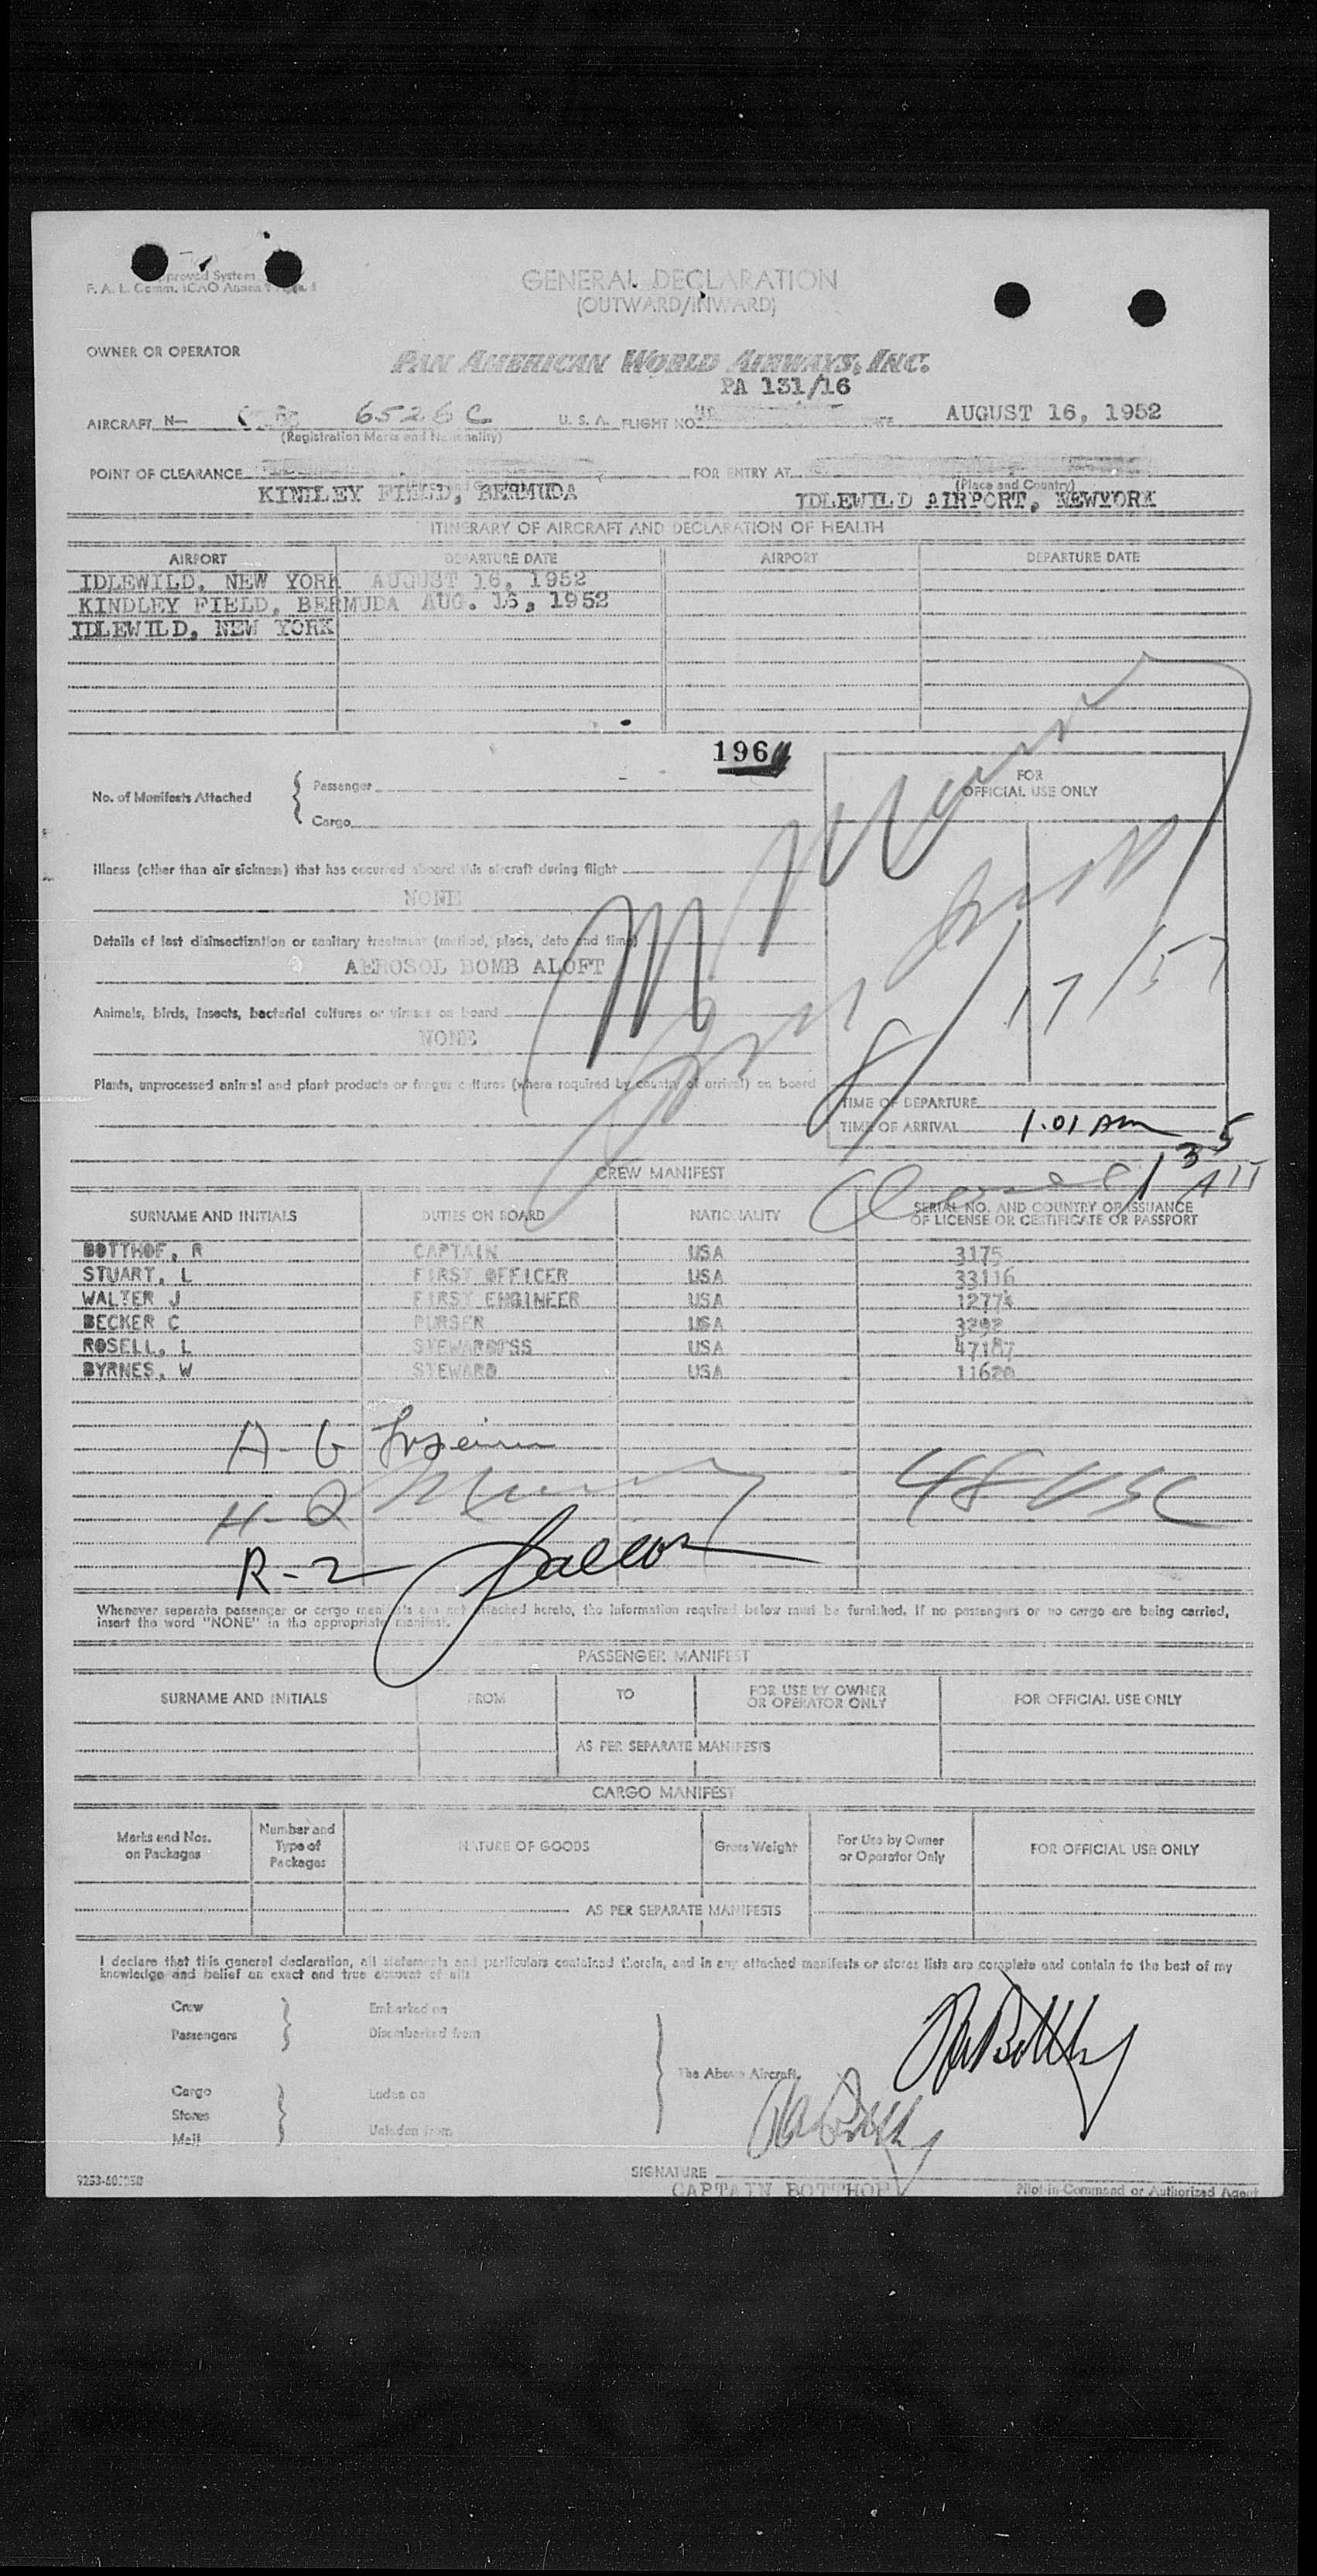 Approved System
F. A. L. Comm. ICAO Annex
GENERAL DECLARATION
(OUTWARD/INWARD)
OWNER OR OPERATOR
PAN AMERICAN WORLD AIRWAYS, INC.
PA 131/16
AIRCRAFT N- 6526C U. S. A. FLIGHT NO. DATE AUGUST 16, 1952
(Registration Marks and Nationality)
POINT OF CLEARANCE FOR ENTRY AT
(Place and Country)
KINDLEY FIELD, BERMUDA IDLEWILD AIRPORT, NEWYORK
ITINERARY OF AIRCRAFT AND DECLARATION OF HEALTH
AIRPORT DEPARTURE DATE AIRPORT DEPARTURE DATE
IDLEWILD, NEW YORK AUGUST 16, 1952
KINDLEY FIELD, BERMUDA AUG. 16, 1952
IDLEWILD, NEW YORK
196
FOR
OFFICIAL USE ONLY
No. of Manifests Attached
Passenger
Cargo
Illness (other than air sickness) that has occurred aboard this aircraft during flight
NONE
Details of last disinsectization or sanitary treatment (method, place, date and time)
AEROSOL BOMB ALOFT
Animals, birds, insects, bacterial cultures or viruses on board
NONE
8/17/57
Plants, unprocessed animal and plant products or fungus cultures (where required by country of arrival) on board
TIME OF DEPARTURE
TIME OF ARRIVAL 1.01 AM
135
CREW MANIFEST
SURNAME AND INITIALS DUTIES ON BOARD NATIONALITY SERIAL NO. AND COUNTRY OF ISSUANCE
OF LICENSE OR CERTIFICATE OR PASSPORT
BOTTHOF, R CAPTAIN USA 3175
STUART, L FIRST OFFICER USA 33116
WALTER J FIRST ENGINEER USA 12774
BECKER C PURSER USA 3292
ROSELL, L STEWARDESS USA 47187
BYRNES, W STEWARD USA 11620
A- G
H-Q 48 USC
R-2
Whenever separate passenger or cargo manifests are not attached hereto, the information required below must be furnished. If no passengers or no cargo are being carried,
insert the word "NONE" in the appropriate manifest.
PASSENGER MANIFEST
SURNAME AND INITIALS FROM TO FOR USE BY OWNER
OR OPERATOR ONLY FOR OFFICIAL USE ONLY
AS PER SEPARATE MANIFESTS
CARGO MANIFEST
Marks and Nos.
on Packages Number and
Type of
Packages NATURE OF GOODS Gross Weight For Use by Owner
or Operator Only FOR OFFICIAL USE ONLY
AS PER SEPARATE MANIFESTS
I declare that this general declaration, all statements and particulars contained therein, and in any attached manifests or stores lists are complete and contain to the best of my
knowledge and belief an exact and true account of all:
Crew Embarked on
Passengers Disembarked from
The Above Aircraft.
Cargo Laden on
Stores
Mail Unladen from
SIGNATURE
CAPTAIN BOTTHOF Pilot-in-Command or Authorized Agent